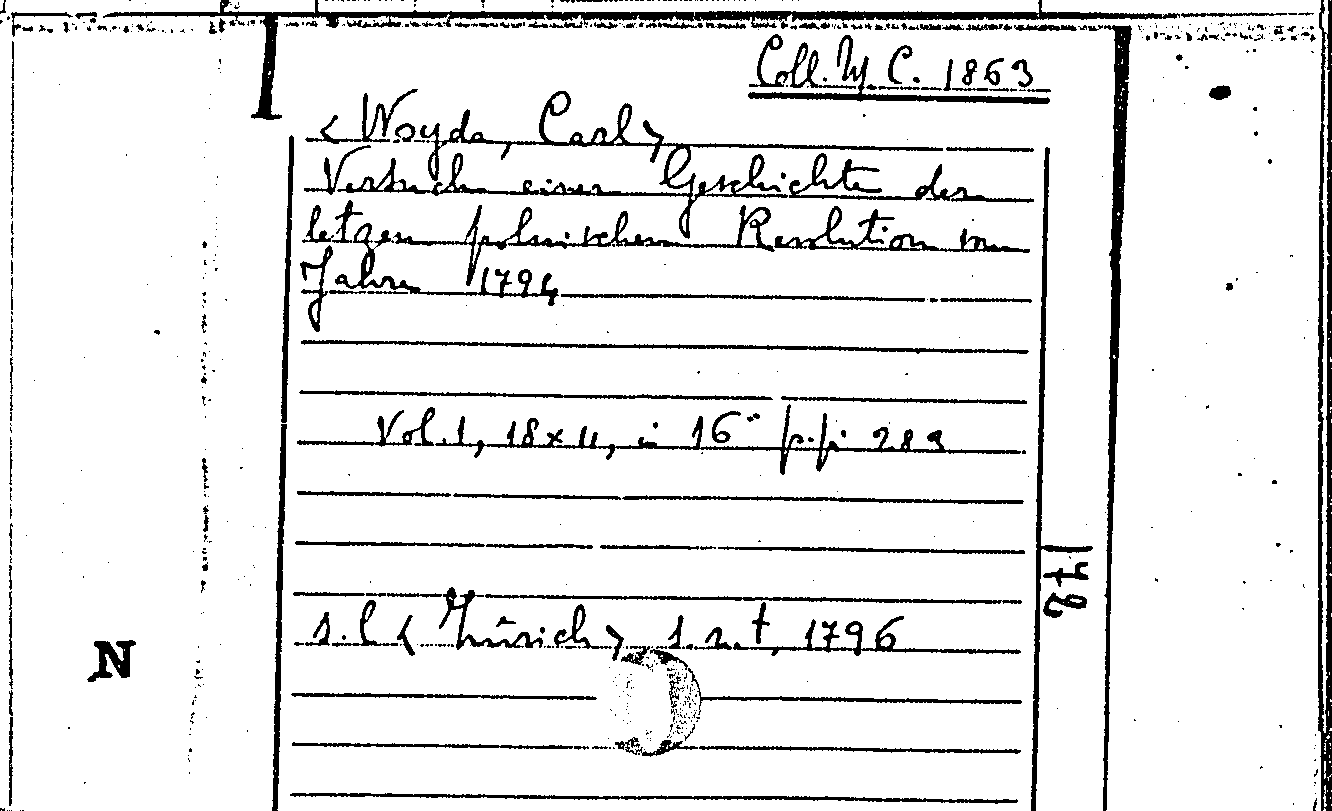 Coll. M. C. 1863
< Woyda, Carl >
Versuch einer Geschichte der
letzen polnischen Revolution vom
Jahre 1794
Vol. 1, 18x11, in 16° p.pi 283
s.l < Zürich > s.n.t, 1796
172
N